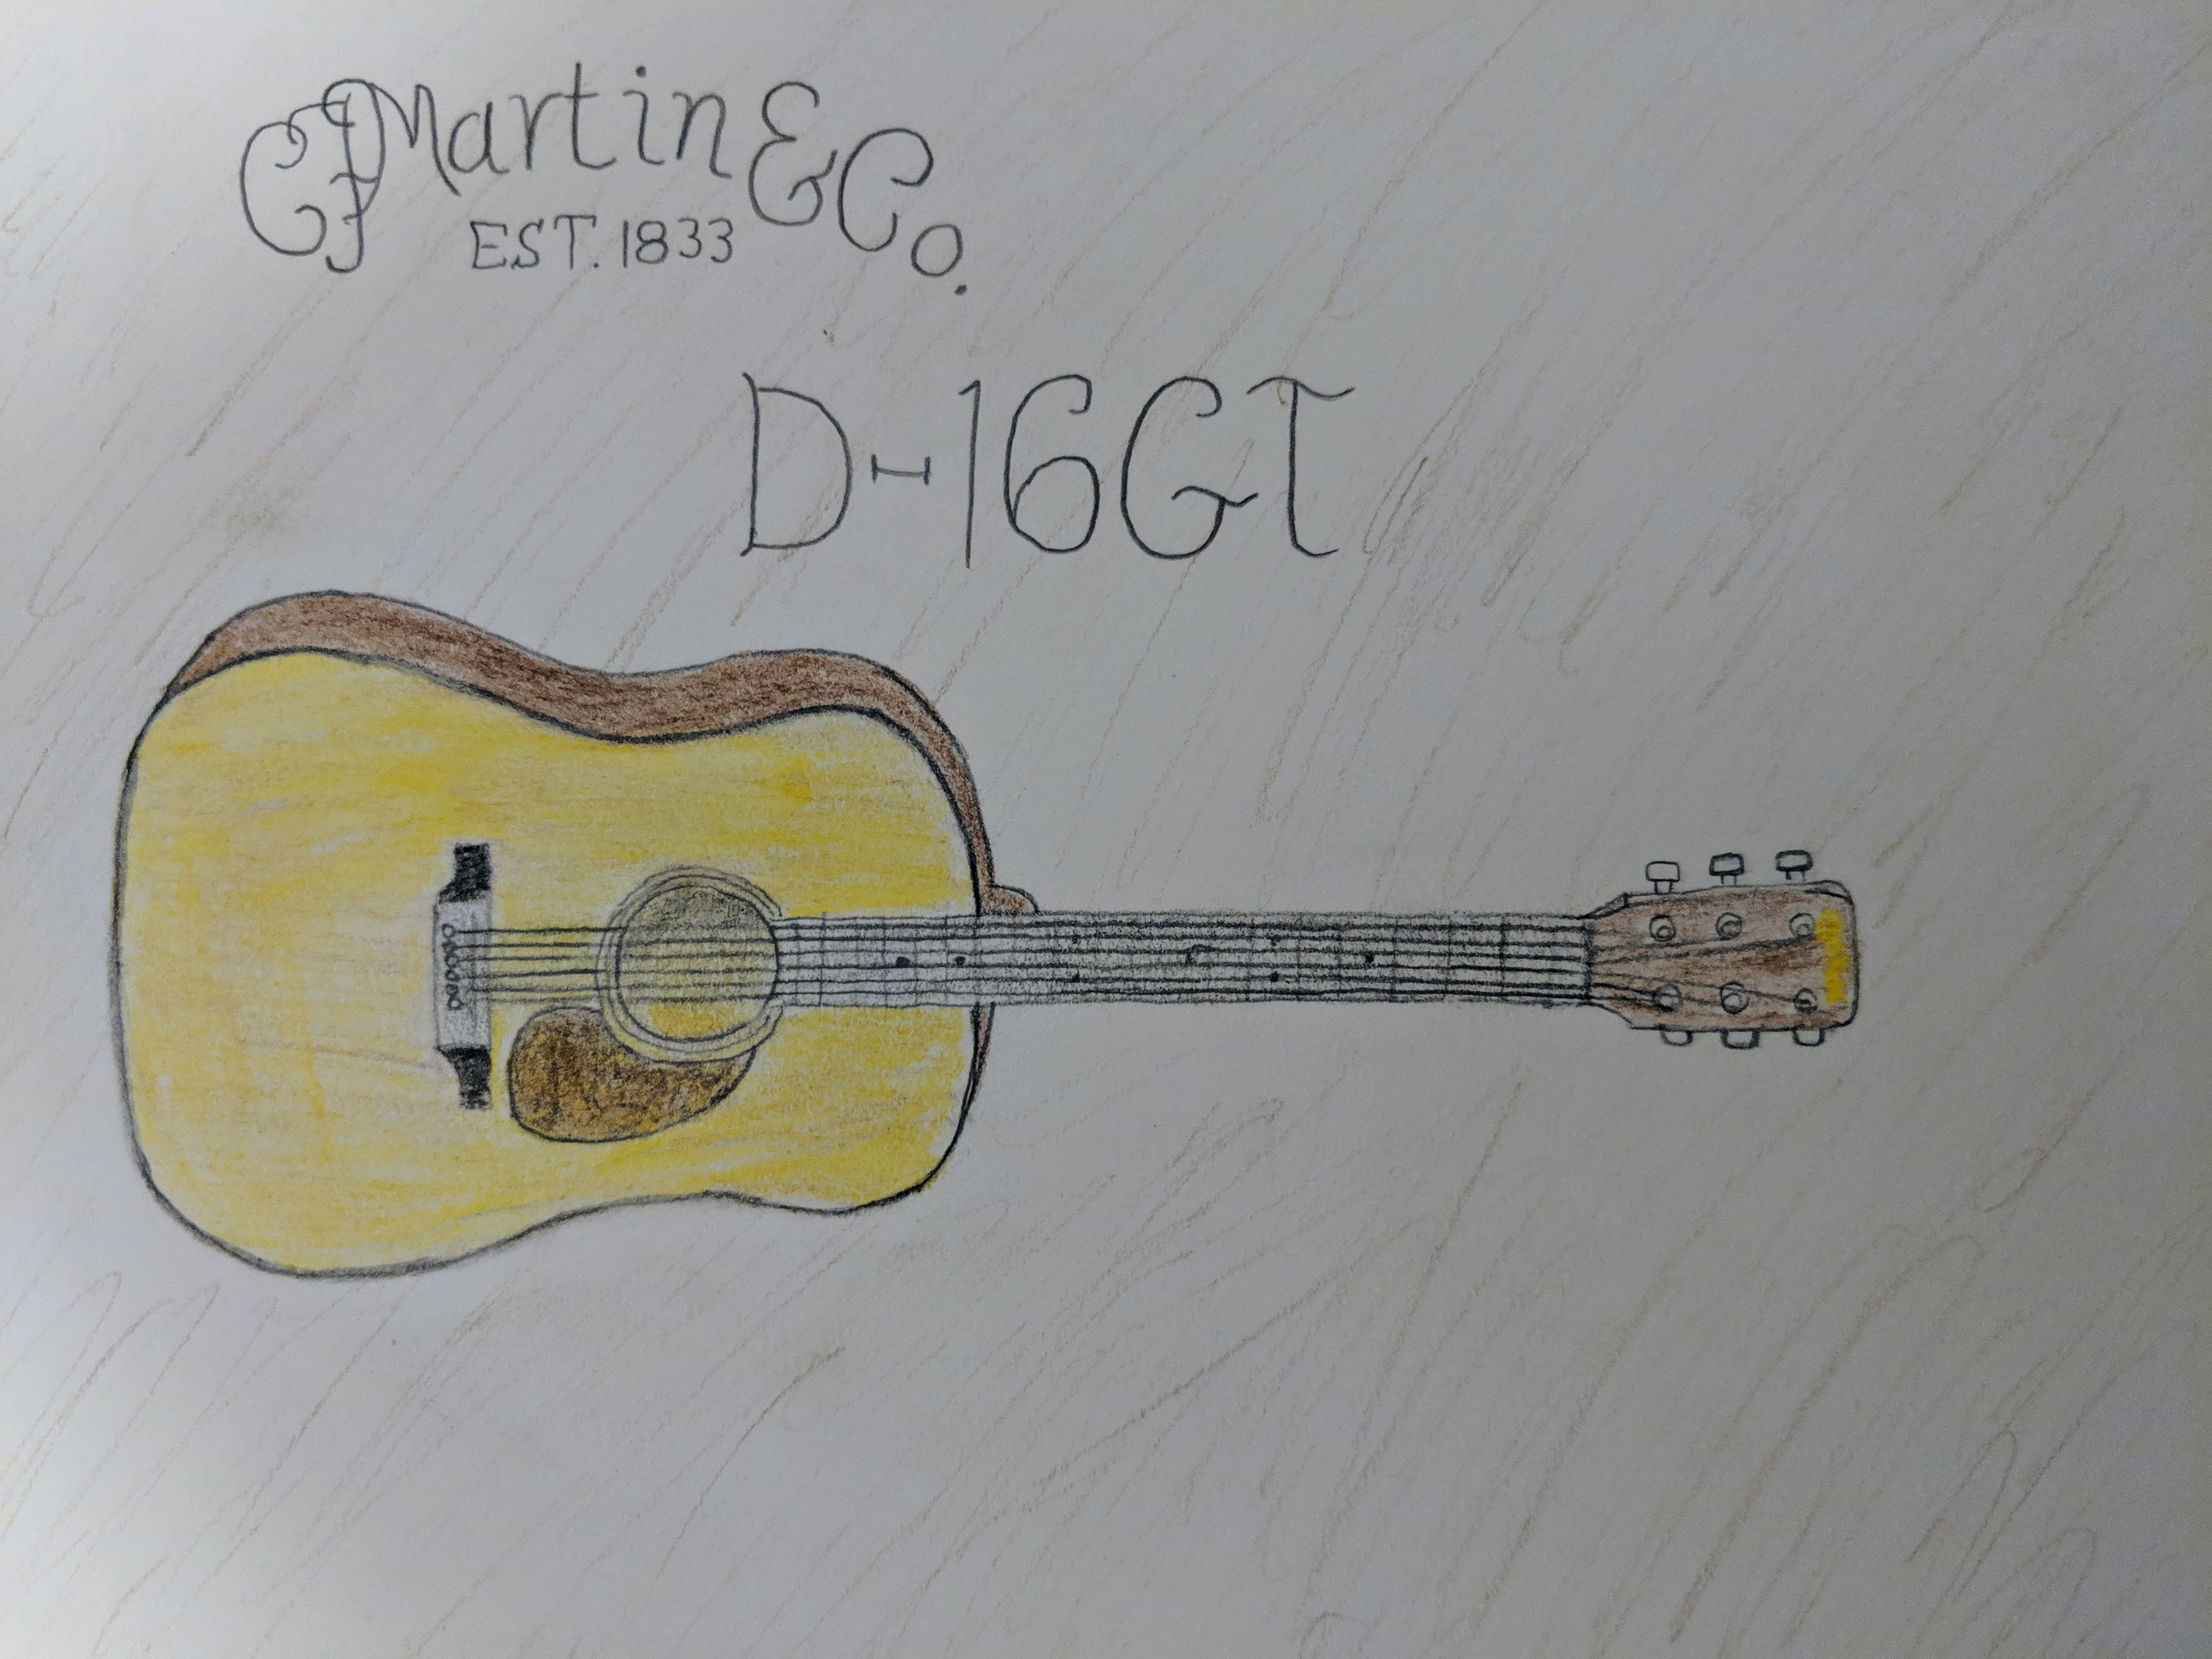 CF Martin & Co.
EST. 1833
D-16GT